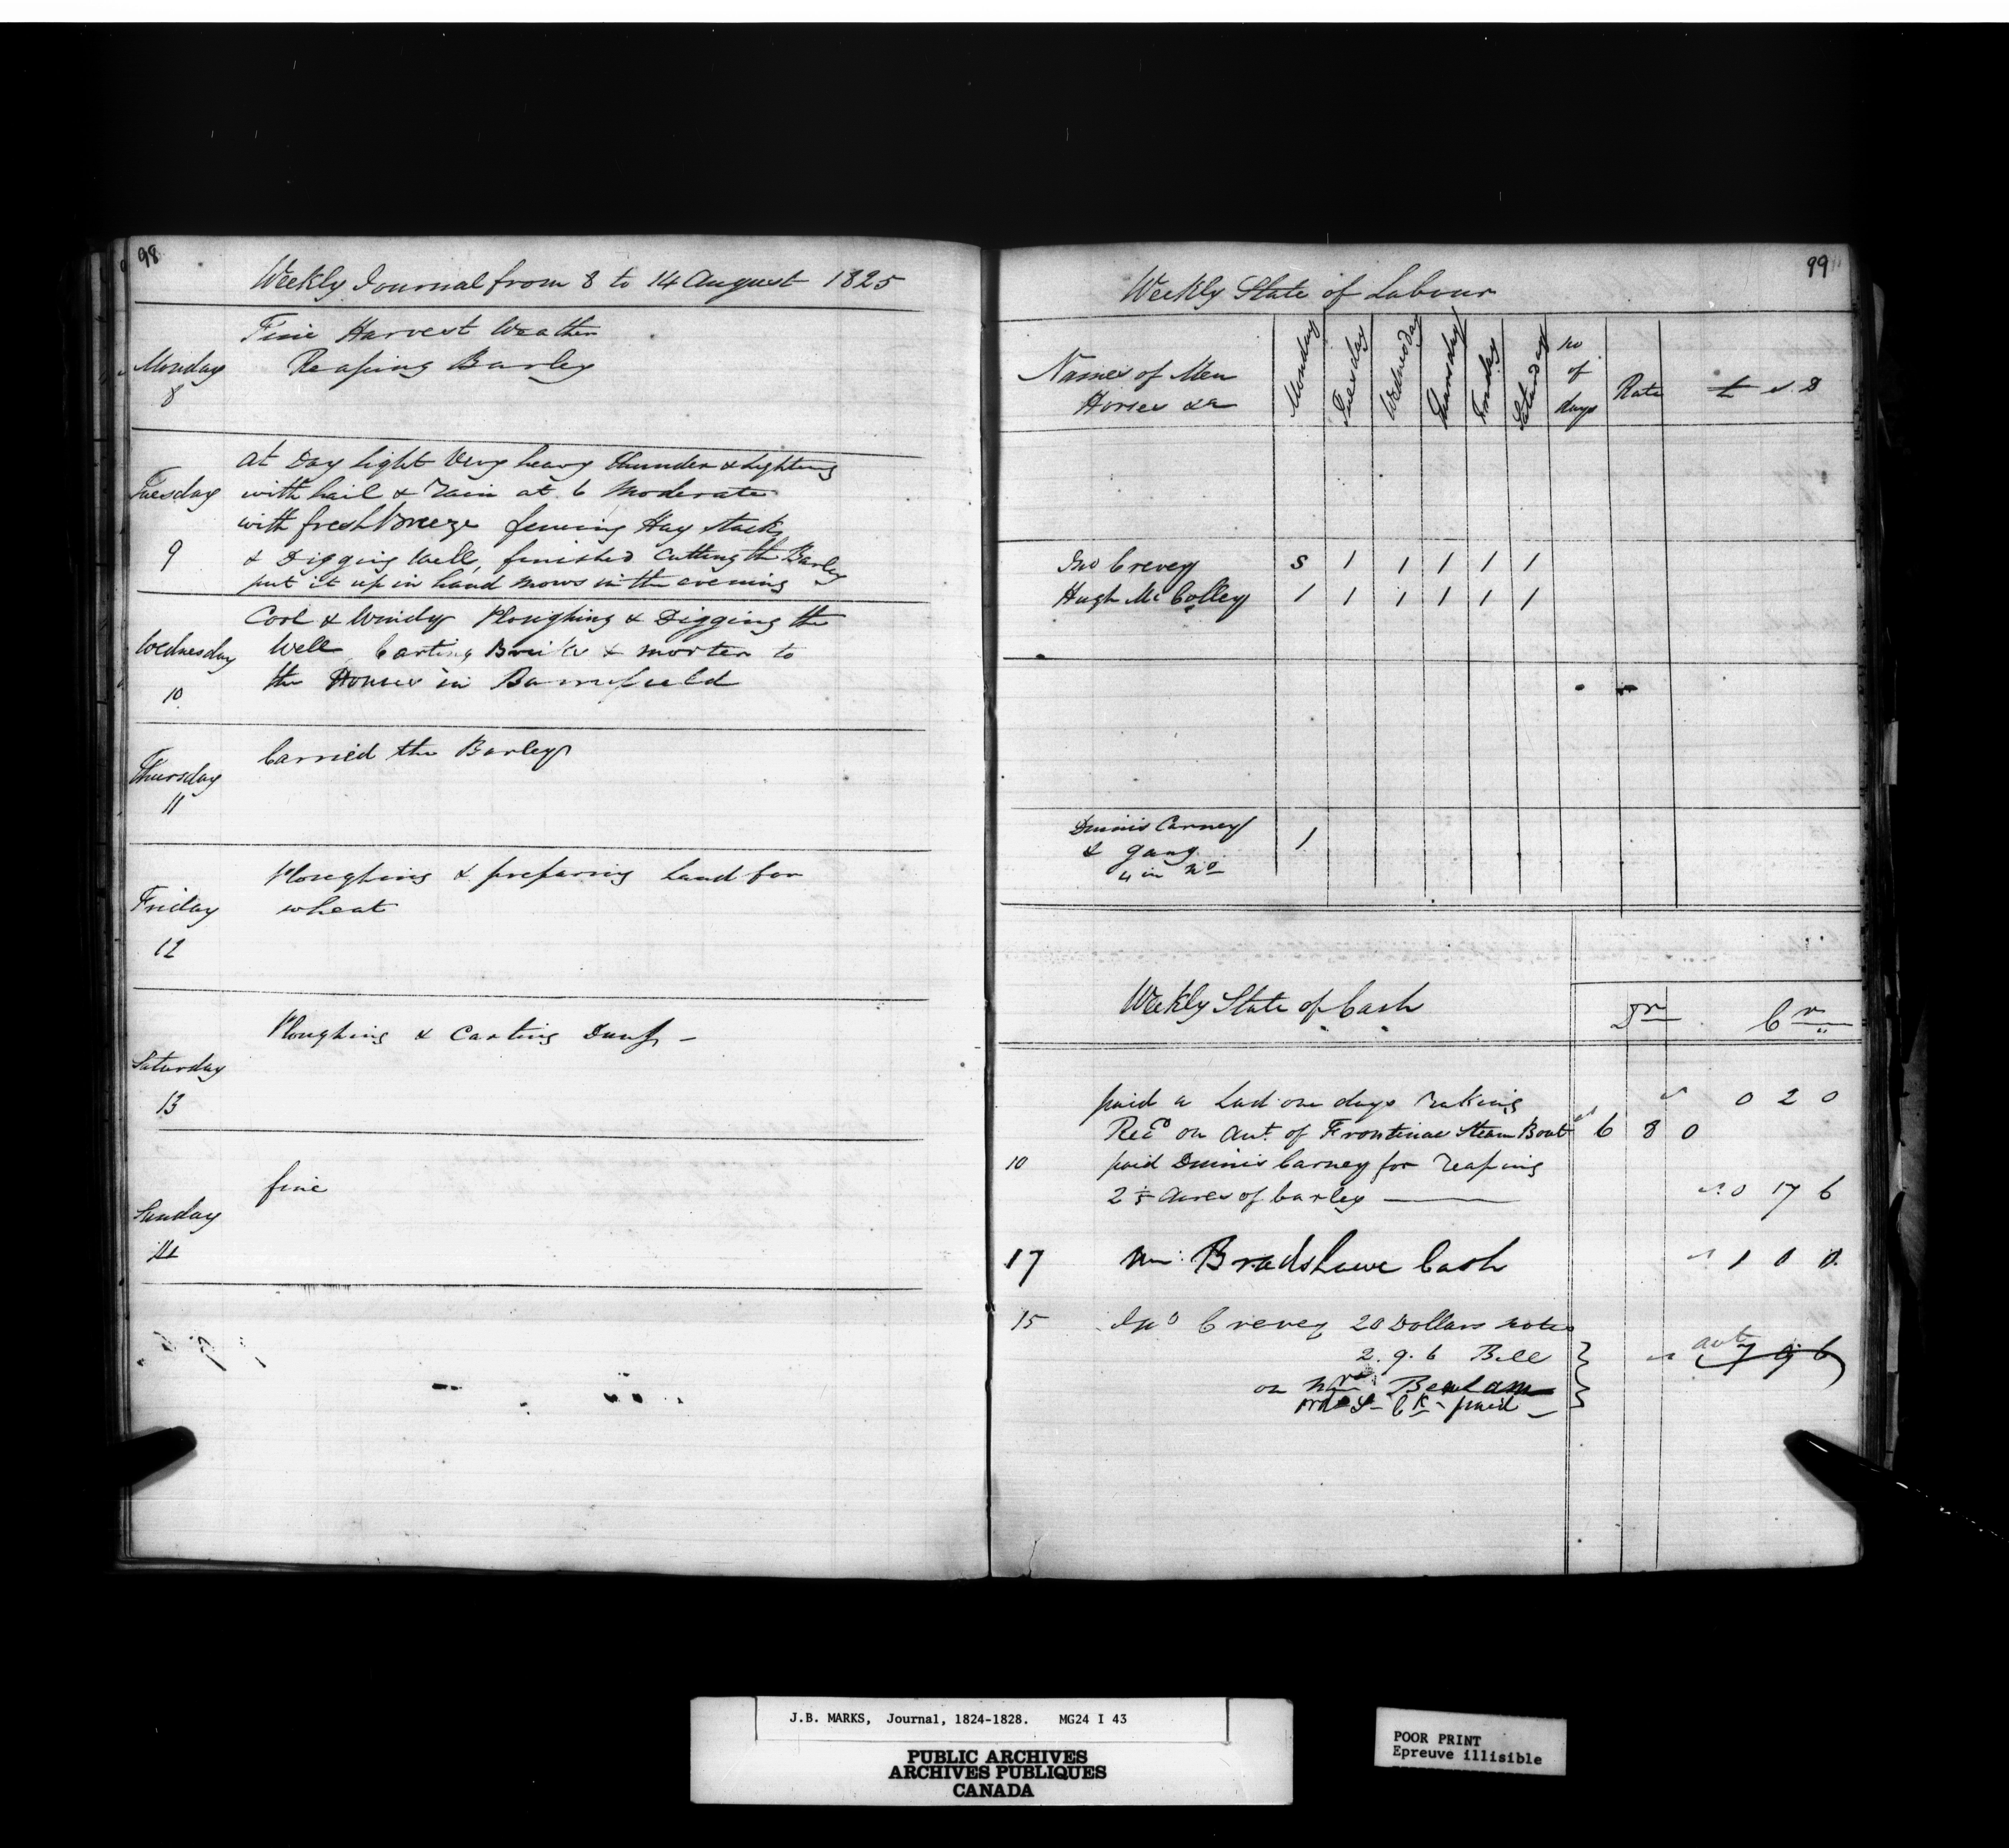 98
Weekly Journal from 8 to 14 August 1825
Fine Harvest Weather
Monday Reaping Barley
8
at Day light Very heavy thunder & Lightning
Tuesday with hail & rain at 6 Moderate
with fresh breeze fencing Hay stacks
9 & Digging Well, finished cutting the Barley
put it up in hand mows in the evening
Cool & Windy Ploughing & Digging the
Wednesday Well Carting Bricks & morter to
10 the Houses in Barriefield
Carried the Barley
Thursday
11
Ploughing & preparing Land for
Friday wheat
12
Ploughing & Carting Dung -
Saturday
13
fine
Sunday
14
99
Weekly State of Labour
Names of Men Horses &c Monday Tuesday Wednesday Thursday Friday Saturday no of days Rate £ s D
Jno Crevey S 1 1 1 1 1
Hugh Mc Colley 1 1 1 1 1 1
Dennis Carney 1
& gang
4 in No
Weekly State of Cash Dr Cr
paid a Lad one days raking 0 2 0
Recd on Acct. of Frontinac Steam Boat 6 8 0
10 paid Dennis Carney for reaping
2 1/2 Acres of barley 0 17 6
17 Mr Bradshawe Cash 1 0 0
15 Jno Crevey 20 Dollars notes
2. 9. 6 Bill 7 9 6
on Benlam
paid
J.B. MARKS, Journal, 1824-1828. MG24 I 43
PUBLIC ARCHIVES
ARCHIVES PUBLIQUES
CANADA
POOR PRINT
Epreuve illisible